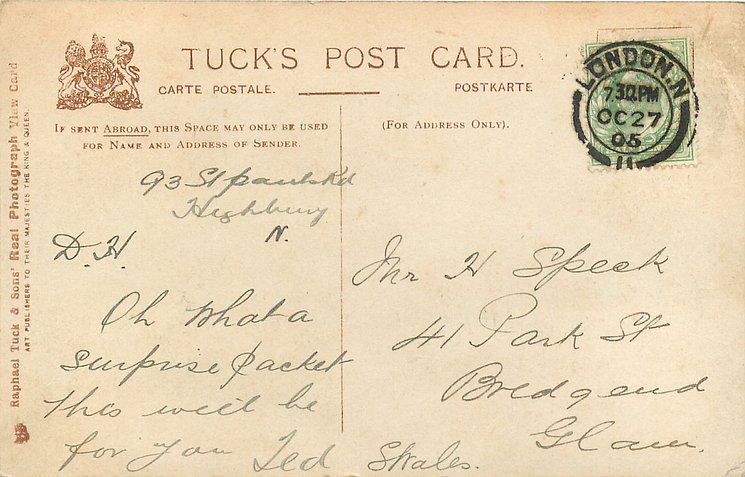 TUCK'S POST CARD.
CARTE POSTALE.
POSTKARTE
IF SENT ABROAD, THIS SPACE MAY ONLY BE USED
FOR NAME AND ADDRESS OF SENDER.
(FOR ADDRESS ONLY).
LONDON.N
7.30PM
OC27
05
11
Raphael Tuck & Sons' Real Photograph View Card
ART PUBLISHERS TO THEIR MAJESTIES THE KING & QUEEN.
93 St pauls Rd
Highbury
N.
D. H.
Oh What a
surprise packet
this will be
for you Ted
Mr H Speck
41 Park St
Bredgend
Glam.
S Wales.